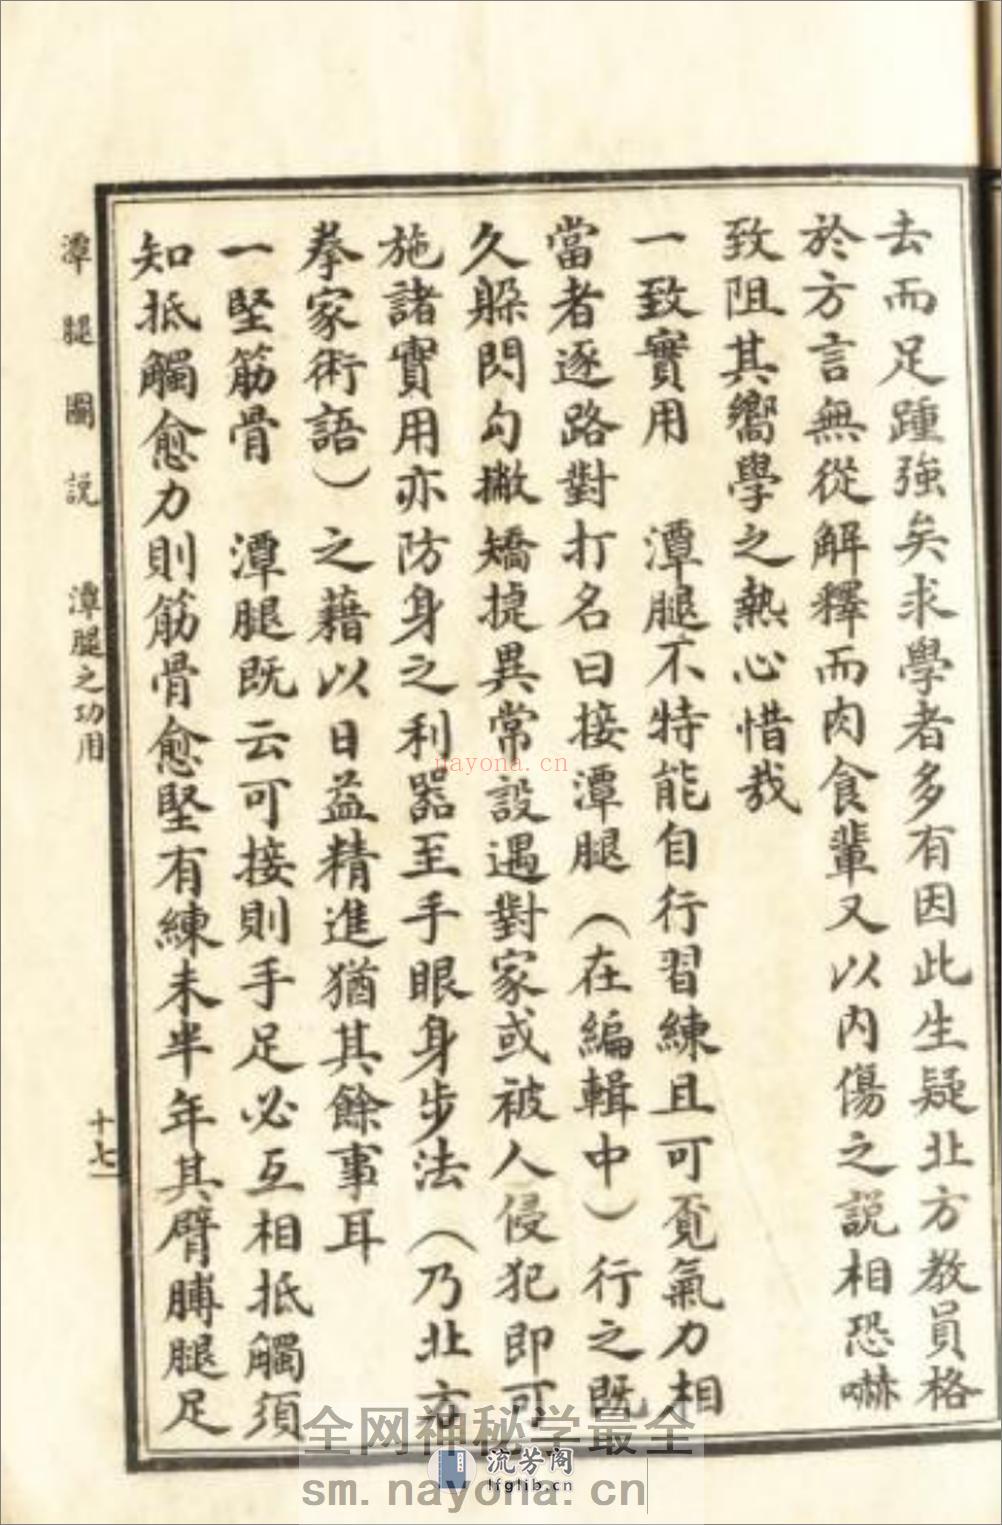 去而足踵強矣求學者多有因此生疑北方教員格
於方言無從解釋而肉食輩又以內傷之說相恐嚇
致阻其嚮學之熱心惜哉
一致實用　潭腿不特能自行習練且可覓氣力相
當者逐路對打名曰接潭腿（在編輯中）行之既
久躲閃勾撇矯捷異常設遇對家或被人侵犯即可
施諸實用亦防身之利器至手眼身步法（乃北方
拳家術語）之藉以日益精進猶其餘事耳
一堅筋骨　潭腿既云可接則手足必互相抵觸須
知抵觸愈力則筋骨愈堅有練未半年其臂膊腿足
潭腿圖說　潭腿之功用
十七
nayona.cn
全网神秘学最全
流芳阁
lfglib.cn
sm.nayona.cn